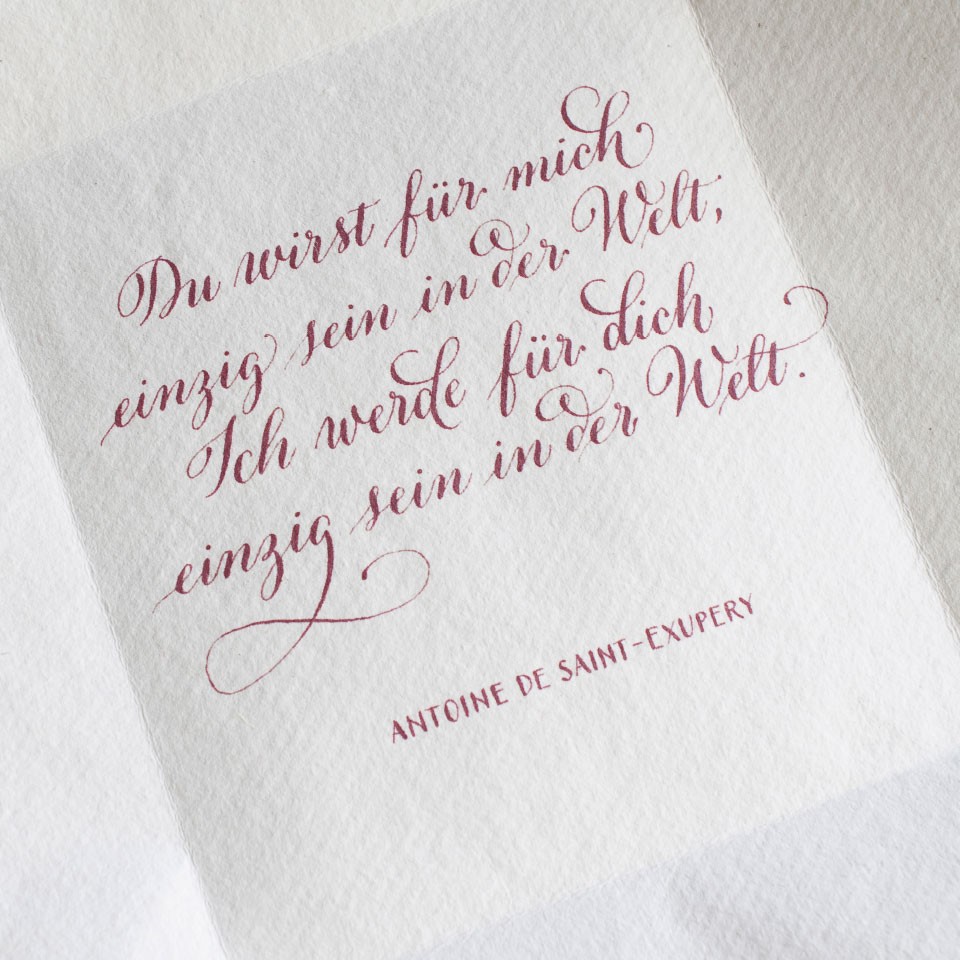 Du wirst für mich
einzig sein in der Welt,
Ich werde für dich
einzig sein in der Welt.
ANTOINE DE SAINT-EXUPERY